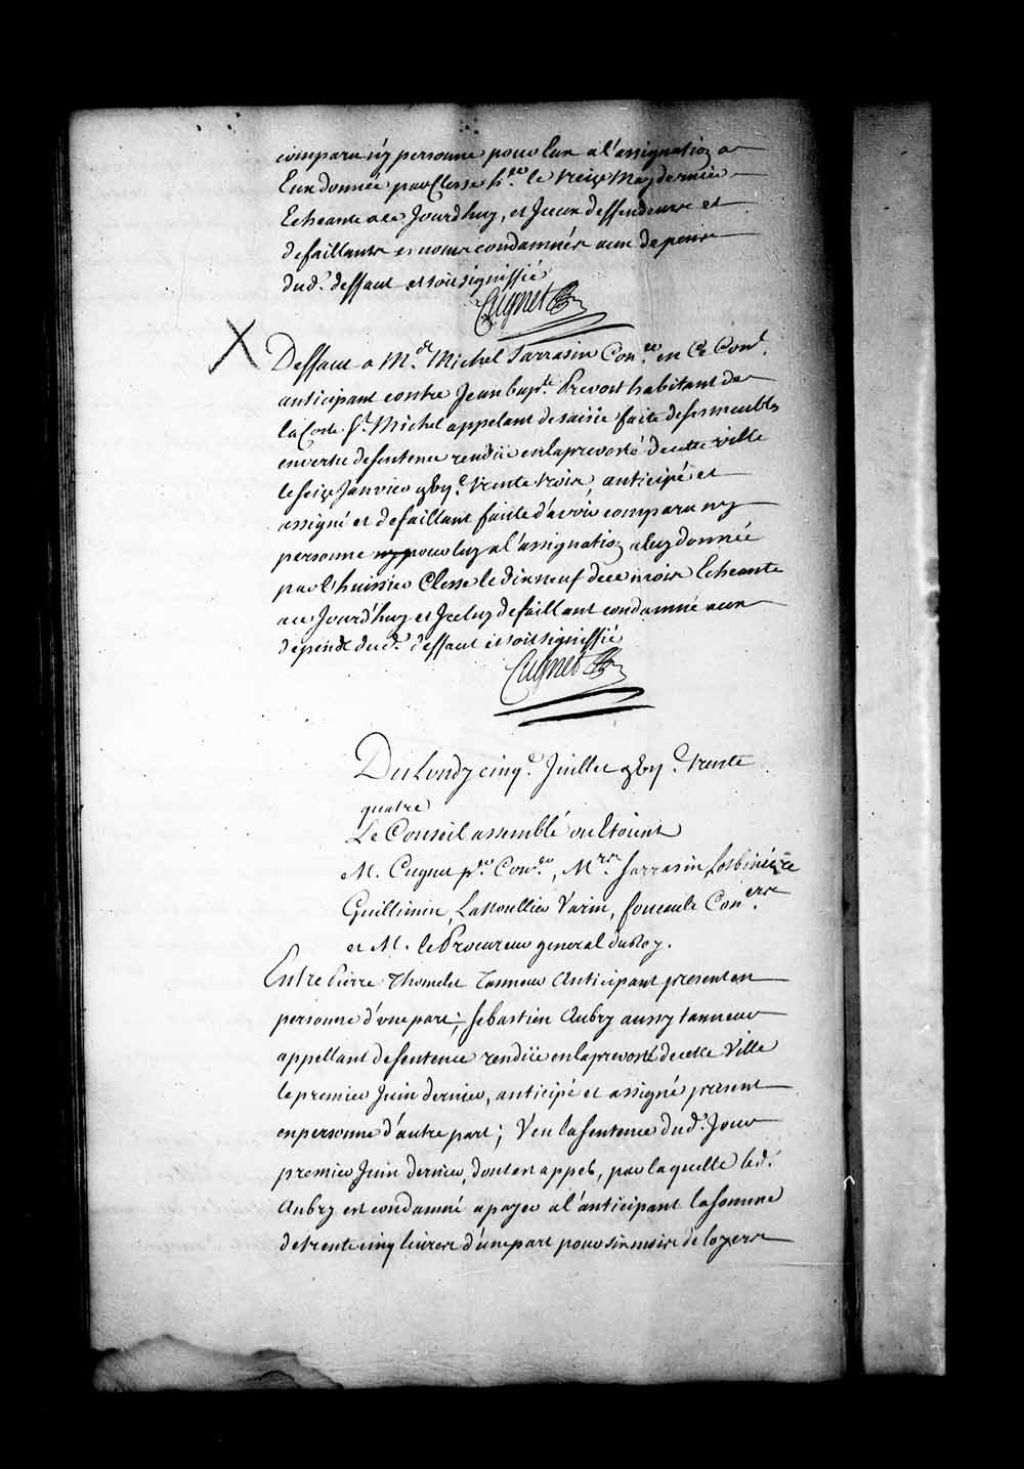 comparu n'y personne pour Eux a l'assignation a
Eux donnée par Clesse h.er le treize May dernier
Echeante a ce Jourd'huy, et Iceux deffendeurs et
defaillants et nous condamnés aux depens
dud.t deffaut et soit signiffié
Cugnet
Deffaut a M.e Michel Sarrasin Con.er en Ce Con.l
anticipant contre Jean bap.te Prevost habitant de
la Coste S.t Michel appelant de saisie faite de ses meubles
en vertu de sentence rendüe en la prevosté de cette ville
le seize Janvier gby.c trente trois anticipé et
assigné et defaillant faute d'avoir comparu ny
personne pour luy a l'assignation a luy donnée
par l'huissier Clesse le dix neuf de ce mois Echeante
a ce Jourd'huy et Iceluy defaillant condamné aux
depens dud.t deffaut et soit signiffié
Cugnet
Du Lundy cinq.e Juillet gby.c trente
quatre
Le Conseil assemblé ou Etoient
M. Cugnet p.er Con.er, M.rs Sarrasin Lotbiniere
Guillimin, Lanoullier Varin, foucault Con.ers
et M. le Procureur general du Roy.
Entre Pierre Thomelet Tanneur Anticipant present en
personne d'une part; Sebastien Aubry aussy tanneur
appellant de sentence rendüe en la prevosté de cette Ville
le premier Juin dernier, anticipé et assigné present
en personne d'autre part; Veu la sentence dud.t Jour
premier Juin dernier, dont en appel, par laquelle led.t
Aubry est condamné a payer a l'anticipant la somme
de trente cinq livres d'une part pour six mois de loyers